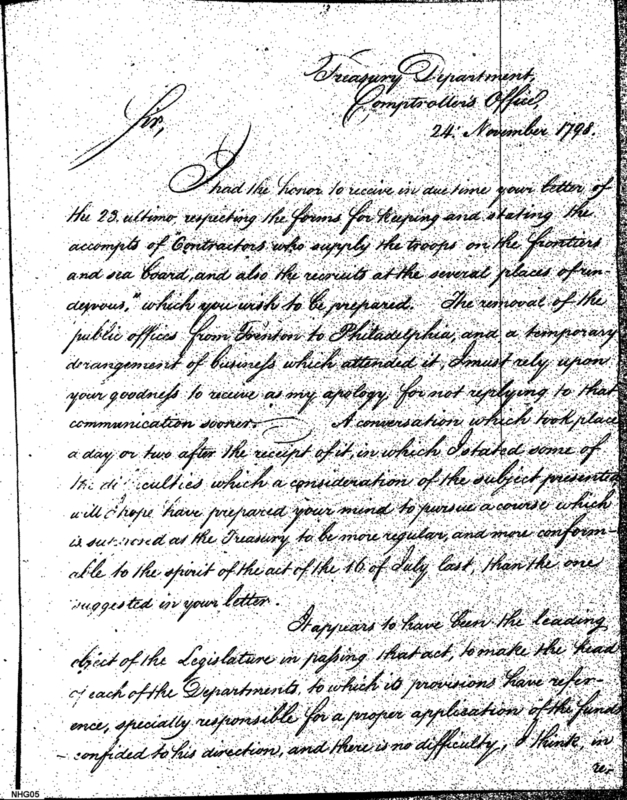 Treasury Department,
Comptroller's Office,
24. November 1798.
Sir,
I had the honor to receive in due time your letter of
the 23. ultimo, respecting the forms for keeping and stating the
accompts of "Contractors who supply the troops on the frontiers
and sea board, and also the recruits at the several places of ren-
dezvous," which you wish to be prepared. The removal of the
public offices from Trenton to Philadelphia, and a temporary
derangement of business which attended it, I must rely upon
your goodness to receive as my apology for not replying to that
communication sooner. A conversation which took place
a day or two after the receipt of it, in which I stated some of
the difficulties which a consideration of the subject presented
will I hope have prepared your mind to pursue a course which
is supposed at the Treasury to be more regular, and more conform-
able to the spirit of the act of the 16 of July last, than the one
suggested in your letter.
It appears to have been the leading
object of the Legislature in passing that act, to make the head
of each of the Departments, to which its provisions have refer-
ence, specially responsible for a proper application of the funds
confided to his direction, and there is no difficulty, I think, in
re-
NHG05